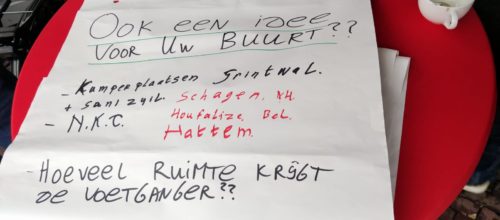 OOK EEN IDEE
VOOR UW BUURT??
- Kamperplaatsen Grintwal.
+ sanizuil. Schagen, NH.
- N.K.C. Houfalize, Bel.
Hattem.
- HOEVEEL RUIMTE KRIJGT
DE VOETGANGER??